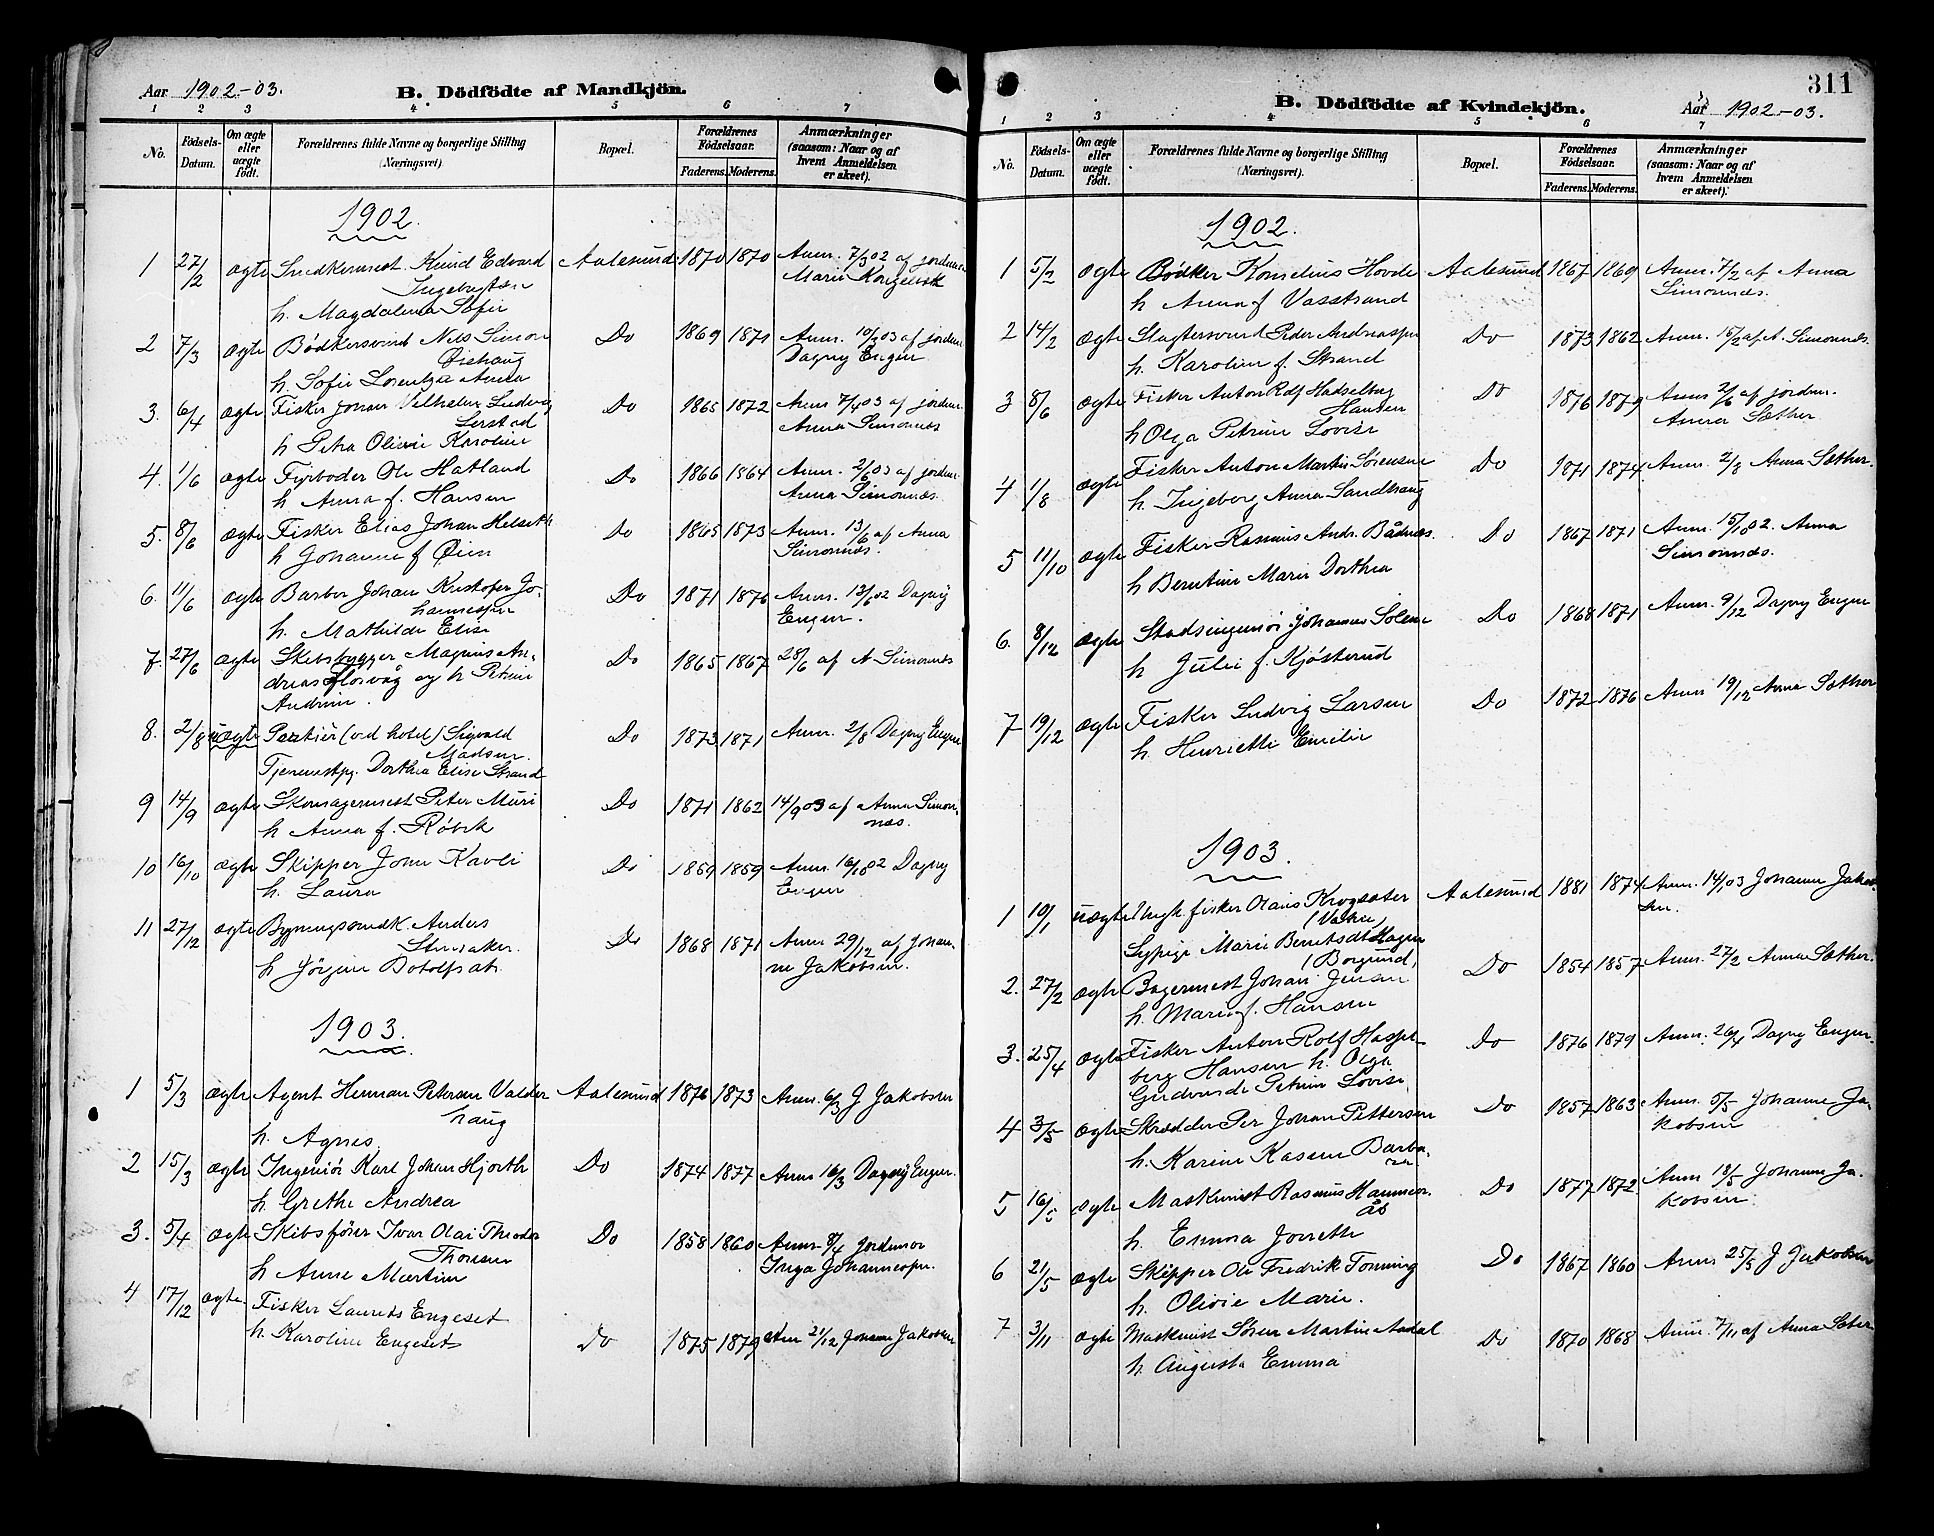 Aar 1902-03. B. Dödfödte af Mandkjön.
1 2 3 4 5 6 7
No. Födsels-Datum. Om ægte eller uægte födt. Forældrenes fulde Navne og borgerlige Stilling (Næringsvei). Bopæl. Forældrenes Födselsaar. Faderens. Moderens. Anmærkninger (saasom: Naar og af hvem Anmeldelsen er skeet).
1902.
1 27/2 ægte Snedkermest. Knud Edvard Aalesund 1870 1870 Anm. 7/3 02 af jordm.
Ingebrigtsen Marie
h. Magdalena Sofie
2 7/3 ægte Bödkersvend Nils Simon Do 1869 1871 Anm. 10/3 03 af jordm.
Öiehaug Dagny Engen
h. Sofie Lorentza Anna
3. 6/4 ægte Fisker Johan Vilhelm Ludvig Do 1865 1872 Anm 7/4 03 af jordm.
Lerstad Anna Simonnæs
h Petra Olivie Karoline
4. 1/6 ægte Fyrböder Ole Hatland Do 1866 1864 Anm. 2/6 03 af jordm.
h Anna f. Hansen Anna Simonnæs.
5. 8/6 ægte Fisker Elias Johan Helseth Do 1865 1873 Anm. 13/6 af Anna
h Johanne f Öien Simonnæs.
6. 11/6 ægte Barber Johan Kristofer Jo- Do 1871 1876 Anm. 13/6 02 Dagny
hannessen Engen.
h. Mathilde Elise
7. 27/6 ægte Skibsbygger Magnus An- Do 1865 1867 28/6 af A Simonnæs
dreas Flosvåg og h Petrine
Andrine.
8. 2/8 uægte Portier (ved hotel) Sigvald Do 1873 1871 Anm. 2/8 Dagny Engen
Madsen.
Tjenestpg. Dorthea Elise Strand
9 14/9 ægte Skomagermest Peter Muri Do 1871 1862 14/9 03 af Anna Simon-
h Anna f. Röbek næs.
10 16/10 ægte Skipper John Kavli Do 1859 1859 Anm. 16/10 02 Dagny
h. Laura Engen
11 27/12 ægte Bygningssnedk. Anders Do 1868 1871 Anm 29/12 af Johan-
h Jörgine Botolfsdt. ne Jakobsen.
1903.
1 5/3 ægte Agent Herman Petersen Valder Aalesund 1876 1873 Anm. 6/3 J Jakobsen
haug
h. Agnes
2 15/3 ægte Ingeniör Karl Johan Hjorth Do 1874 1877 Anm 16/3 Dagny Engen.
h. Grethe Andrea
3. 5/4 ægte Skibsförer Ivar Olai Theodor Do 1858 1860 Anm. 8/4 Jordemor
Thoresen Inga Johannessen.
h Anne Martine
4 17/12 ægte Fisker Laurits Engeset
h. Karoline Engeset Do 1875 1879 Anm 21/12 Johanne Jakobsen
311
B. Dödfödte af Kvindekjön. Aar 1902-03.
1 2 3 4 5 6 7
No. Födsels-Datum. Om ægte eller uægte födt. Forældrenes fulde Navne og borgerlige Stilling (Næringsvei). Bopæl. Forældrenes Födselsaar. Faderens. Moderens. Anmærkninger (saasom: Naar og af hvem Anmeldelsen er skeet).
1902.
1 5/2 ægte Bödker Kornelius Hovde Aalesund 1867 1869 Anm. 7/2 af Anna
h Anna f Vasstrand Simonnæs.
2 14/2 ægte Slagtersvend Peder Andreassen Do 1873 1862 Anm. 15/2 af A. Simonnæs.
h. Karoline f. Strand
3 8/6 ægte Fisker Anton Rolf Hadselberg Do 1876 1879 Anm 2/6 af jordm.
Hansen Anna Sæther
h Olga Petrine Lovise
4 1/8 ægte Fisker Anton Martin Sörensen Do 1871 1874 Anm. 2/8 Anna Sæther.
h. Ingeborg Anna Sandhaug
5 11/10 ægte Fisker Rasmus Andr. Bådnæs Do 1867 1871 Anm. 15/10 02. Anna
h Berntine Marie Dorthea Simonnæs.
6. 8/12 ægte Stadsingeniör Johannes Solem Do 1868 1871 Anm. 9/12 Dagny Engen
h Julie f. Kjösterud
7 19/12 ægte Fisker Ludvig Larsen Do 1872 1876 Anm 19/12 Anna Sæther
h. Henriette Emilie
1903.
1 10/1 uægte Ungk. fisker Olaus Krogsæter Aalesund 1881 1874 Anm. 14/1 03 Johanne Jakob-
sen.
Sypige Marie Berntsdt Hagen
(Borgund)
2. 27/2 ægte Bagermest Johan Jensen Do 1854 1857 Anm. 27/2 Anna Sæther.
h. Marie f. Hansen
3. 25/4 ægte Fisker Anton Rolf Hassel- Do 1876 1879 Anm. 26/4 Dagny Engen.
berg Hansen h. Olga
Petrine Lovise
4 3/5 ægte Skrædder Per Johan Pettersen Do 1857 1863 Anm. 5/5 Johanne Ja-
h. Karine Kasen Barba- kobsen
5 16/5 ægte Maskinist Rasmus Hammer- Do 1877 1872 Anm 18/5 Johanne Ja-
ås kobsen
h. Emma Jorette
6 21/5 ægte Skipper Ole Fredrik Tonning Do 1867 1860 Anm 25/5 J Jakobsen
h. Olivie Marie.
7 3/11 ægte Maskinist Sören Martin Aadal Do 1870 1868 Anm. 7/11 af Anna Sæter
h. Augusta Emma